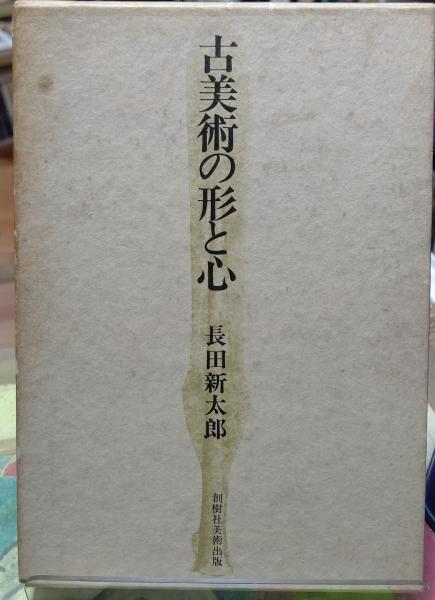 古美術の形と心
長田新太郎
創樹社美術出版